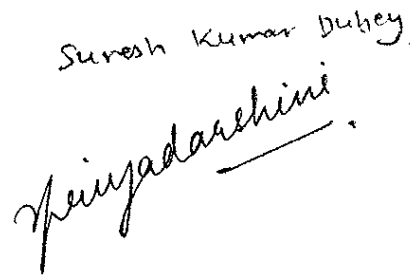 Suresh Kumar Dubey
Priyadarshini